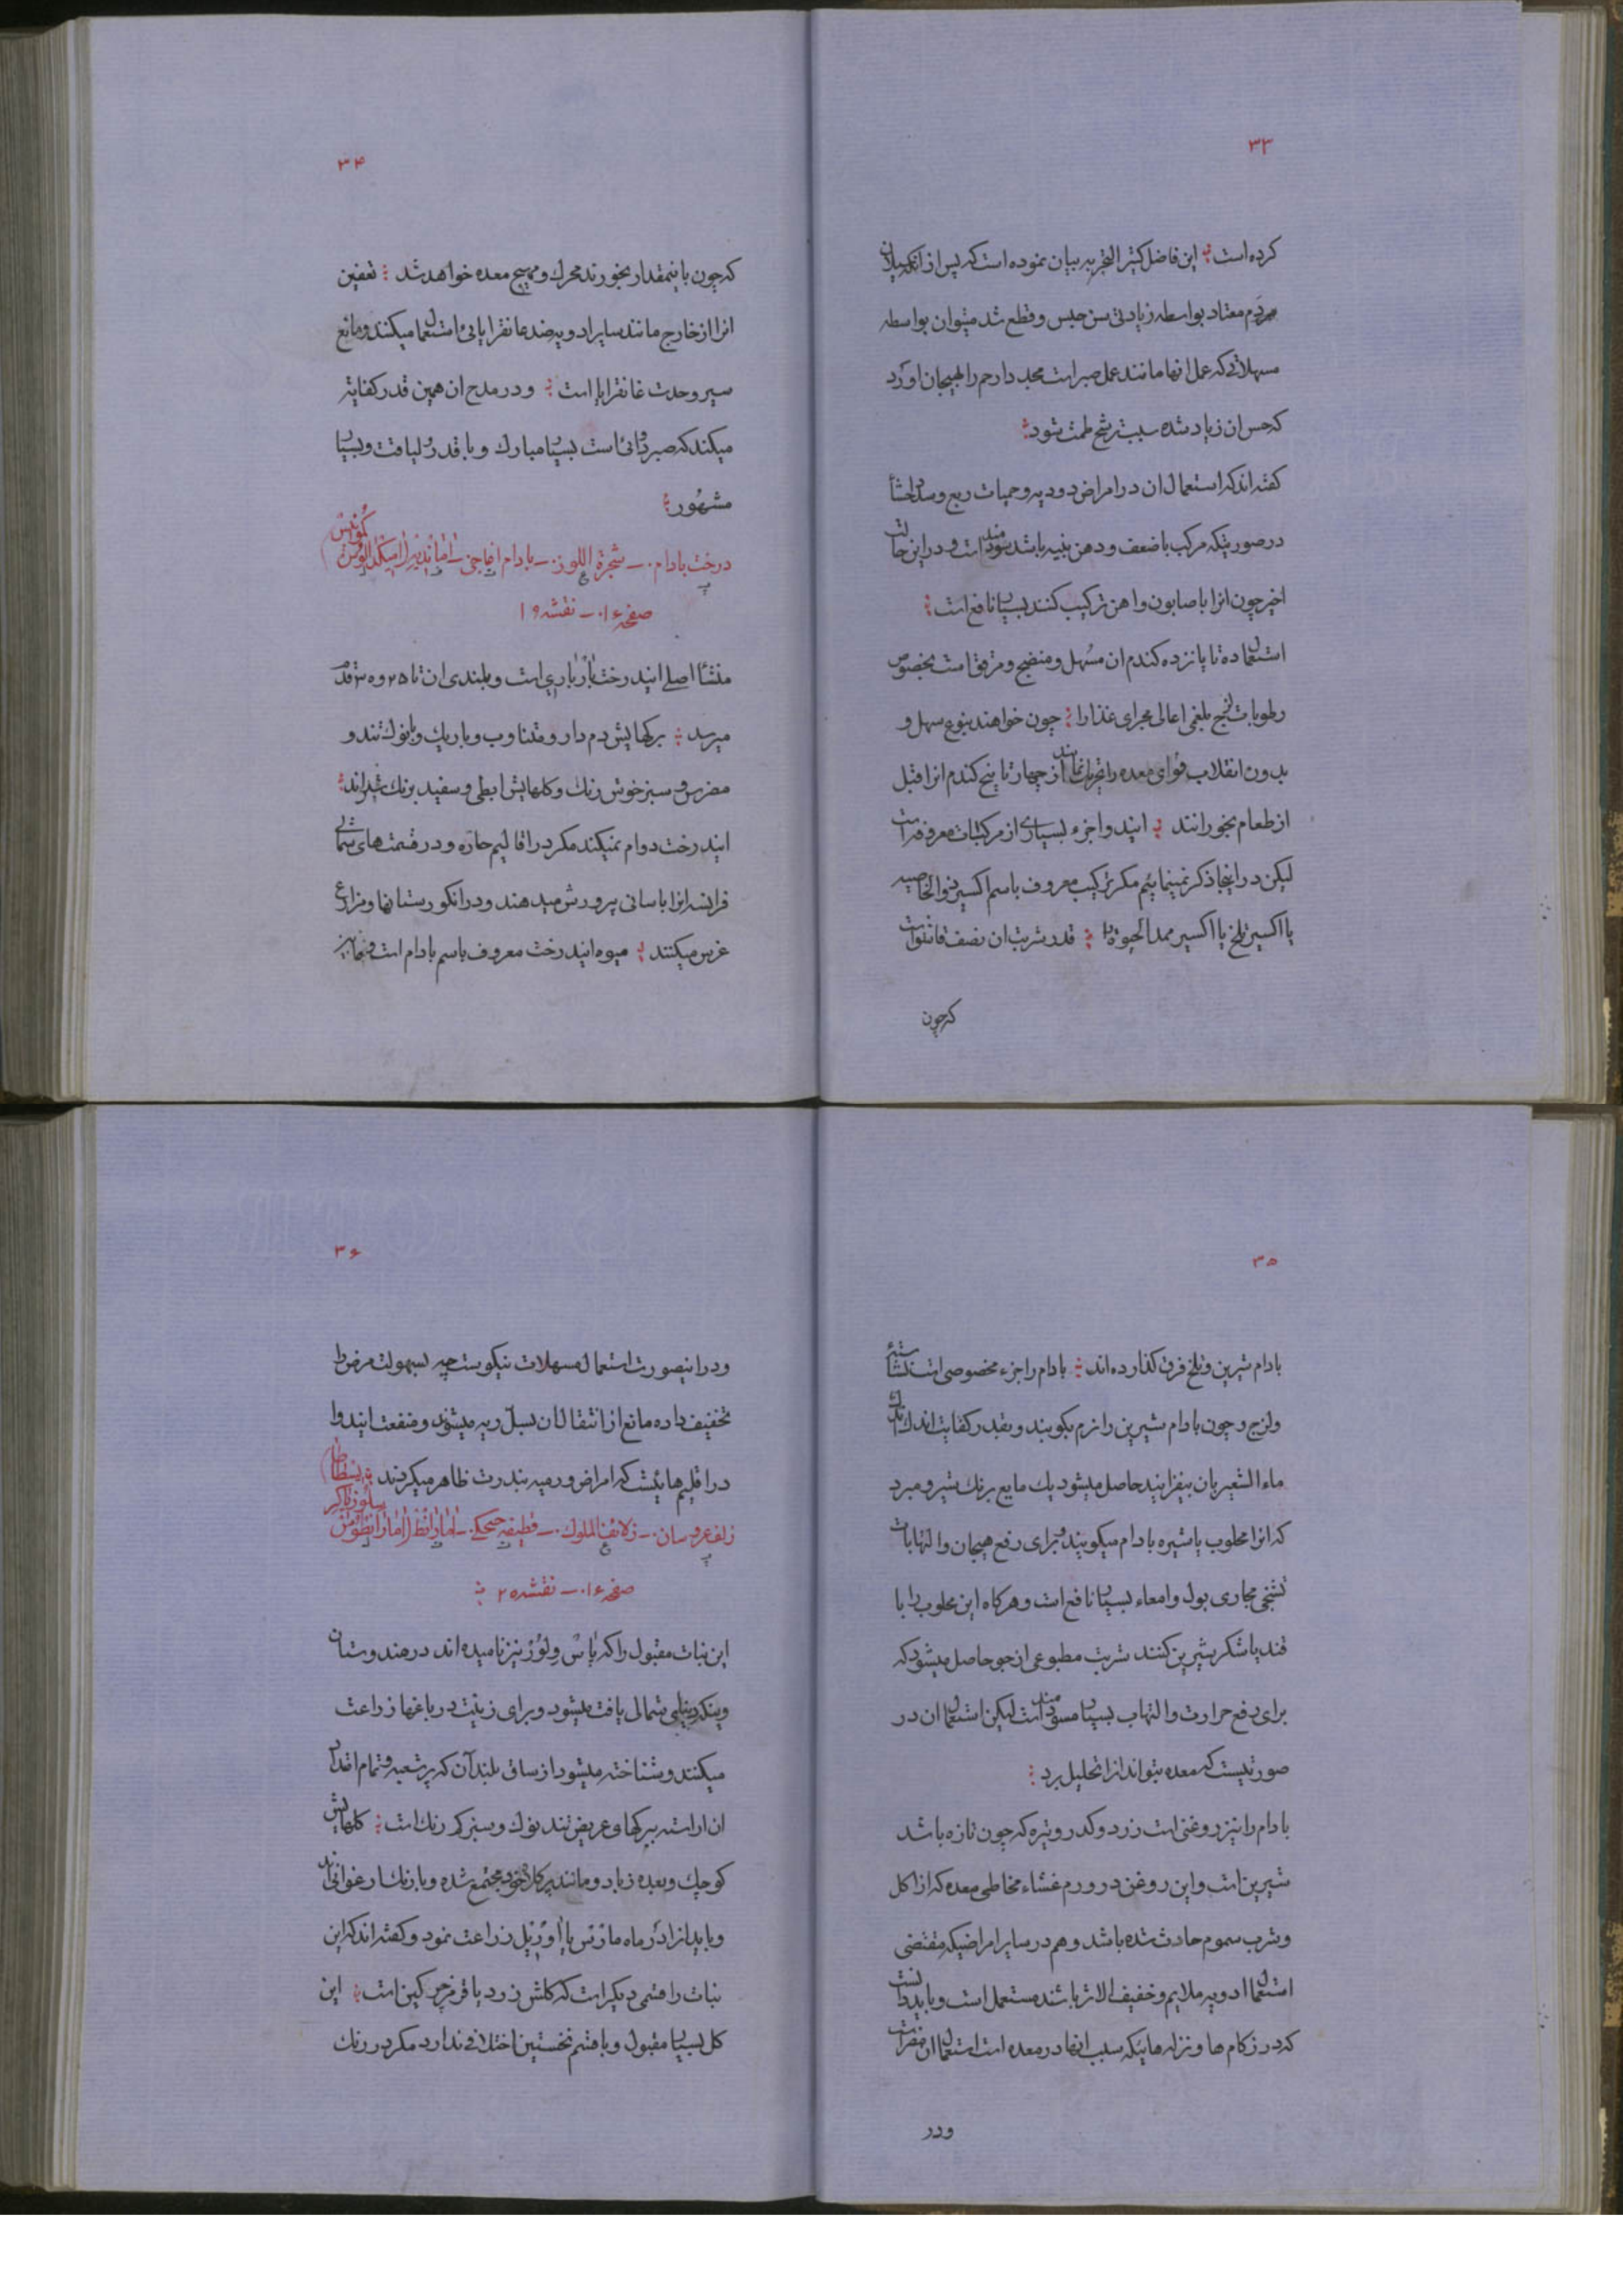 ۳۳
کرده است این فاضل کثیر التجربه بیان نموده است که پس از انکه سیلان
مردم معتاد بواسطه زیادتی سن حبس و قطع شد میتوان بواسطه
مسهلاتی که عمل انها مانند عمل صبر است مجددا رحم را بهیجان اورد
که حس ان زیاد شده سبب ترشح طمث شود
کفته اند که استعمال ان در امراض دودیه و حمیات ربع و سدد احشا
در صورتیکه مرکب با ضعف و وهن بنیه باشد سودمند است و در این حالت
اخیر چون انرا با صابون و اهن ترکیب کنند بسیار نافع است
استعمال ده تا پانزده کندم ان مسهل و منضج و مرقق است بخصوص
رطوبات لزج بلغمی اعالی مجرای غذا را چون خواهند بنوع سهل و
بدون انقلاب قوای معده را تحریک نمایند از چهار تا پنج کندم انرا قبل
از طعام بخورانند ایندوا جزء بسیاری از مرکبات معروفه است
لیکن در اینجا ذکر نمینمائیم مکر ترکیب معروف باسم اکسیر ذوالخاصیه
یا اکسیر تلخ یا اکسیر ممد الحیوة را قدر شربت ان نصف قاشق است
که چون
۳۴
که چون باینمقدار بخورند محرک و مهیج معده خواهد شد تعفین
انرا از خارج مانند سایر ادویه ضد غانقرایائی استعمال میکنند و مانع
سیر و حدت غانقرایا است و در مدح ان همین قدر کفایة
میکند که صبر دوائی است بسیار مبارک و با قدر و لیاقت و بسیار
مشهور
درخت بادام ۰ـ شجرة اللوز ۰ـ بادام اغاجی ـ
صفحه ۱۶ ۰ـ نقشه ۱۹
منشأ اصلی ایندرخت بارباری است و بلندی ان تا ۲۵ و ۳۰ قدم
میرسد برکهایش دم دار و متناوب و باریک و با نوک تند و
مضرس و سبز خوش رنک و کلهایش ابطی و سفید برنک شیراند
ایندرخت دوام نمیکند مکر در اقالیم حاره و در قسمت های شمالی
فرانسه انرا باسانی پرورش میدهند و در انکورستانها و مزارع
غرس میکنند میوه ایندرخت معروف باسم بادام است و مابین
۳۵
بادام شیرین و تلخ فرق کذارده اند بادام را جزء مخصوصی است نشاستۀ
و لزج و چون بادام شیرین را نرم بکوبند و بقدر کفایت اندک اندک
ماء الشعیر بان بیفزایند حاصل میشود یک مایع برنک شیر و مبرد
که انرا محلوب یا شیره بادام میکویند و برای رفع هیجان و التهابات
تشنجی مجاری بول و امعاء بسیار نافع است و هر کاه این محلوب را با
قند یا شکر شیرین کنند شربت مطبوعی از جو حاصل میشود که
برای دفع حرارت و التهاب بسیار سودمند است لیکن استعمال ان در
صورتیست که معده بتواند انرا تحلیل برد
بادام را نیز روغنی است زرد و کدر و تیره که چون تازه باشد
شیرین است و این روغن در ورم غشاء مخاطی معده که از اکل
و شرب سموم حادث شده باشد و هم در سایر امراضیکه مقتضی
استعمال ادویه ملایم و خفیف الاثر باشند مستعمل است و باید دانست
که در زکام ها و نزله هائیکه سبب انها در معده است استعمال ان مضر است
و در
۳۶
و در اینصورت استعمال مسهلات نیکوست چه بسهولت مرض را
تخفیف داده مانع از انتقال ان بسل ریه میشوند و منفعت ایندوا
در اقلیم هائیست که امراض ورمیه بندرت ظاهر میکردند
زلف عروسان ۰ـ زلائف الملوک ۰ـ قطیفه چیچکی ۰ـ
صفحه ۱۶ ۰ـ نقشه ۲۰
این نبات مقبول را که پاس ولور نیز نامیده اند در هندوستان
و ینکی دنیای شمالی یافت میشود و برای زینت در باغها زراعت
میکنند و شناخته میشود از ساق بلند آن که پر شعبه و تمام اقدار
ان اراسته ببرکهای عریض تند نوک و سبز کم رنک است کلهایش
کوچک و بعده زیاد و مانند پر کلاه خود مجتمع شده و با رنک ارغوانی اند
و باید از اذر ماه مارس یا اوریل زراعت نمود و کفته اند که این
نبات را قسمی دیکر است که کلش زرد یا قرمز چرکین است این
کل بسیار مقبول و با قسم نخستین اختلافی ندارد مکر در رنک